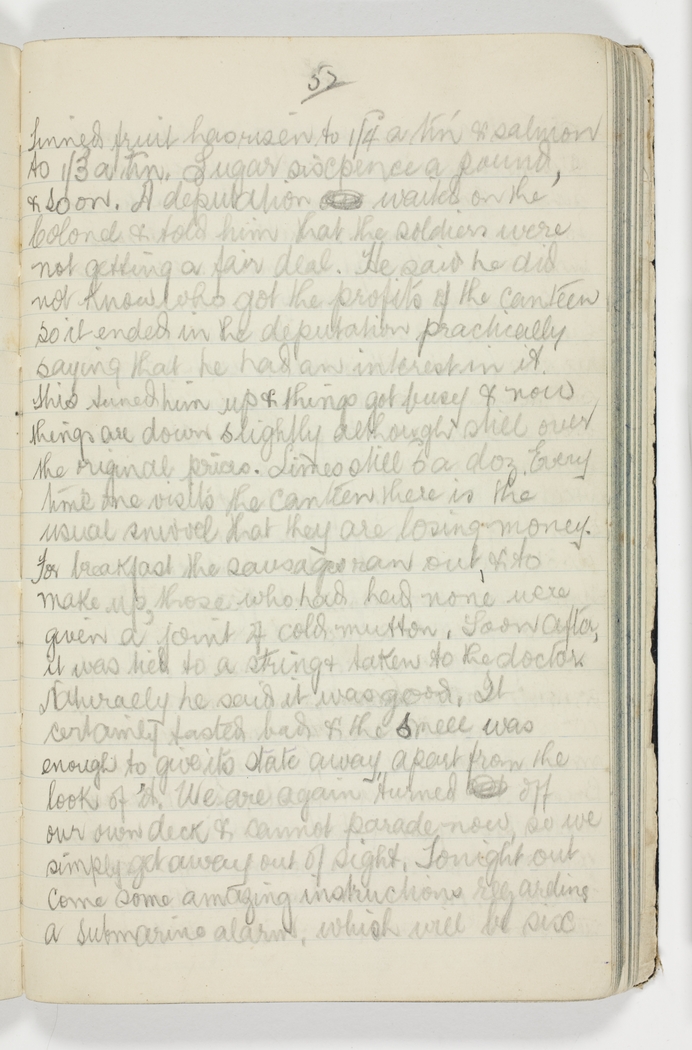 52
Tinned fruit has risen to 1/4 a tin & salmon
to 1/3 a tin. Sugar sixpence a pound,
& so on. A deputation waited on the
Colonel & told him that the soldiers were
not getting a fair deal. He said he did
not know who got the profits of the canteen
so it ended in the deputation practically
saying that he had an interest in it.
This tuned him up & things got busy & now
things are down slightly although still over
the original prices. Limes still 6 a doz. Every
time one visits the canteen there is the
usual snivvel that they are losing money.
For breakfast the sausages ran out, & to
make up, those who had had none were
given a joint of cold mutton. Soon after,
it was tied to a string & taken to the doctor.
Naturally he said it was good. It
certainly tasted bad & the smell was
enough to give its state away apart from the
look of it. We are again turned off
our own deck & cannot parade now, so we
simply get away out of sight. Tonight out
come some amazing instructions regarding
a submarine alarm, which will be six